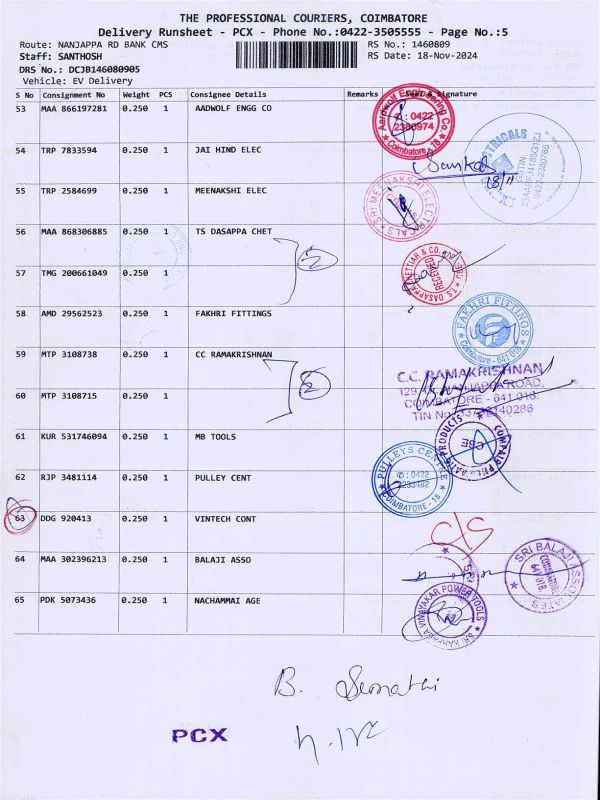 THE PROFESSIONAL COURIERS, COIMBATORE
Delivery Runsheet - PCX - Phone No.:0422-3505555 - Page No.:5
Route: NANJAPPA RD BANK CMS RS No.: 1460809
Staff: SANTHOSH RS Date: 18-Nov-2024
DRS No.: DCJB146080905
Vehicle: EV Delivery
S No Consignment No Weight PCS Consignee Details Remarks Seal & signature
53 MAA 866197281 0.250 1 AADWOLF ENGG CO
Aardwolf Engineering Co.
✆ : 0422
2380974
Coimbatore - 18
54 TRP 7833594 0.250 1 JAI HIND ELEC
TRICALS
GSTIN:
0422-2380765
18/11
55 TRP 2584699 0.250 1 MEENAKSHI ELEC
SRI MEENAKSHI ELECTRICALS
56 MAA 868306885 0.250 1 TS DASAPPA CHET
2
57 TMG 200661049 0.250 1
T.S. DASAPPA CHETTIAR & CO.
RECEIVED
58 AMD 29562523 0.250 1 FAKHRI FITTINGS
FAKHRI FITTINGS
Coimbatore - 641 018
59 MTP 3108738 0.250 1 CC RAMAKRISHNAN
2
C.C. RAMAKRISHNAN
NANJAPPA ROAD,
COIMBATORE - 641 018.
60 MTP 3108715 0.250 1
61 KUR 531746094 0.250 1 MB TOOLS
PRODUCTS
CBE
62 RJP 3481114 0.250 1 PULLEY CENT
PULLEYS CENTRE
✆ : 0422
COIMBATORE - 18
63 DDG 920413 0.250 1 VINTECH CONT
64 MAA 302396213 0.250 1 BALAJI ASSO
SRI BALAJI ASSOCIATES
COIMBATORE
641 018.
65 PDK 5073436 0.250 1 NACHAMMAI AGE
SRI KARPAGA VINAYAKAR POWER TOOLS
B.
PCX